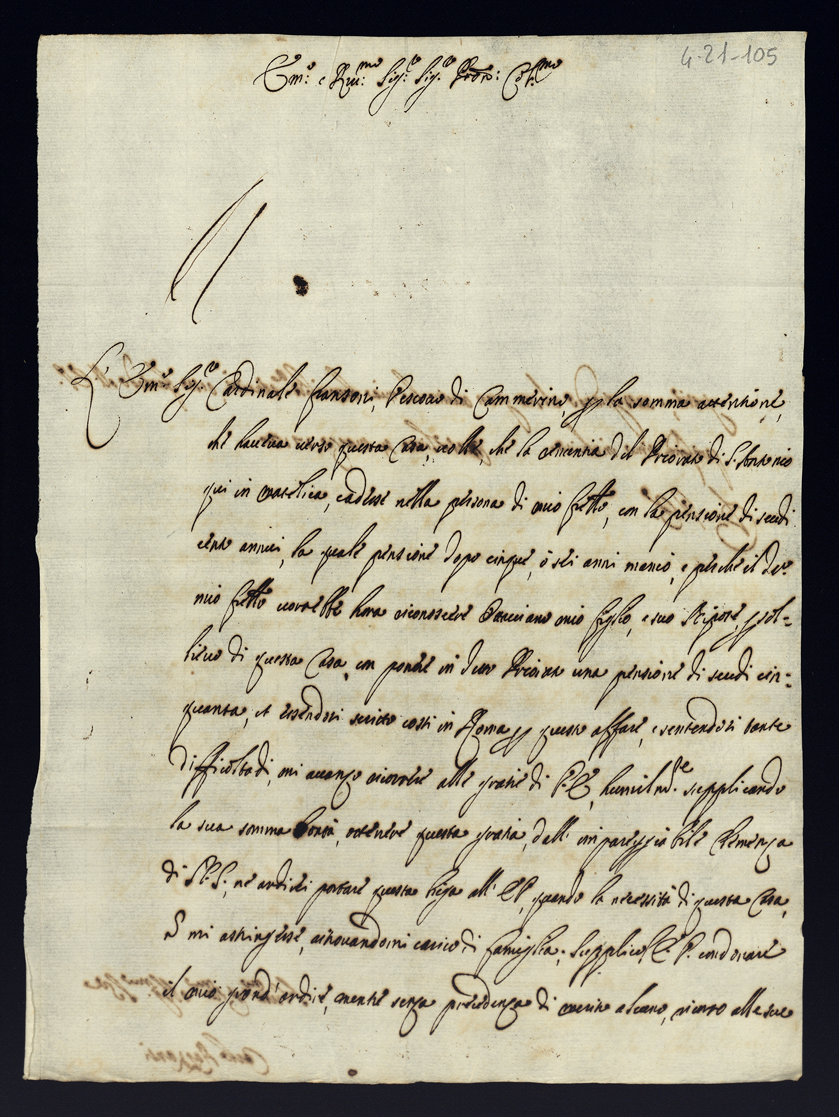 4-21-105
Em.º e Rev.mo Sig.re Sig.re Pron: Col.mo
L' Em.º Sig.re Cardinale Fransoni, Vescovo di Cammerino, p la somma attentione,
che haveva verso questa Casa, volse, che la rinuntia del Priorato di S. Antonio
qui in Matelica, cadesse nella persona di mio fratello, con la pensione di scudi
cento annui, la quale pensione dopo cinque, ò sei anni mancò, e perche il do.
mio fratello vorrebbe hora riconoscere Ottaviano mio figlio, e suo Nipote, p sol=
lievo di questa Casa, con ponere in detto Priorato una pensione di scudi cin=
quanta, et essendosi scritto costì in Roma p questo affare, e sentendosi tante
difficoltadi, mi avanzo ricorrere alle gratie di V. E., humilm.te supplicando
la sua somma bontà, ottenere questa gratia, dall' impareggiabile Clemenza
di N. S., ne ardirei portare questa briga all' E V, quando la necessità di questa Casa,
non mi astringesse, ritrovandomi carico di famiglia; supplico V. E. condonare
il mio grand' ardire, mentre senza precedenza di merito alcuno, ricorro alle sue